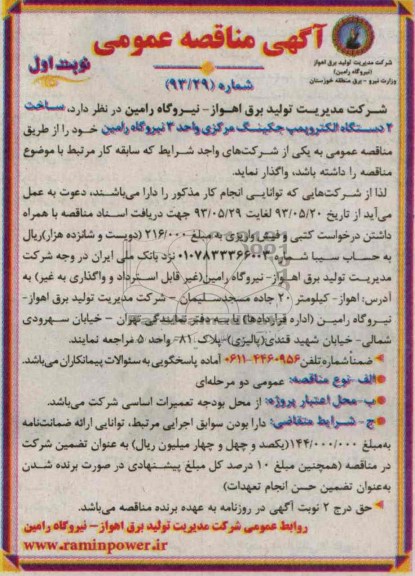 آگهی مناقصه عمومی
شماره (۹۳/۲۹)
نوبت اول
شرکت مدیریت تولید برق اهواز
(نیروگاه رامین)
وزارت نیرو - برق منطقه خوزستان
شرکت مدیریت تولید برق اهواز- نیروگاه رامین در نظر دارد، ساخت
۲ دستگاه الکتروپمپ جکینگ مرکزی واحد ۳ نیروگاه رامین خود را از طریق
مناقصه عمومی به یکی از شرکت‌های واجد شرایط که سابقه کار مرتبط با موضوع
مناقصه را داشته باشد، واگذار نماید.
لذا از شرکت‌هایی که توانایی انجام کار مذکور را دارا می‌باشند، دعوت به عمل
می‌آید از تاریخ ۹۳/۰۵/۲۰ لغایت ۹۳/۰۵/۲۹ جهت دریافت اسناد مناقصه با همراه
داشتن درخواست کتبی و فیش واریزی به مبلغ ۲۱۶/۰۰۰ (دویست و شانزده هزار)ریال
به حساب سیبا شماره ۰۱۰۷۸۳۳۳۶۶۰۰۳ نزد بانک ملی ایران در وجه شرکت
مدیریت تولید برق اهواز- نیروگاه رامین(غیر قابل استرداد و واگذاری به غیر) به
آدرس: اهواز- کیلومتر ۲۰ جاده مسجدسلیمان - شرکت مدیریت تولید برق اهواز-
نیروگاه رامین (اداره قراردادها) یا به دفتر نمایندگی تهران - خیابان سهروردی
شمالی- خیابان شهید قندی(پالیزی)-پلاک ۸۱- واحد ۵ مراجعه نمایند.
ضمناً شماره تلفن ۴۴۶۰۹۵۶-۰۶۱۱ آماده پاسخگویی به سئوالات پیمانکاران می‌باشد.
الف -نوع مناقصه: عمومی دو مرحله‌ای
ب- محل اعتبار پروژه: از محل بودجه تعمیرات اساسی شرکت می‌باشد.
ج- شرایط متقاضی: دارا بودن سوابق اجرایی مرتبط، توانایی ارائه ضمانت‌نامه
به‌مبلغ ۱۴۴/۰۰۰/۰۰۰(یکصد و چهل و چهار میلیون ریال) به عنوان تضمین شرکت
در مناقصه (همچنین مبلغ ۱۰ درصد کل مبلغ پیشنهادی در صورت برنده شدن
به‌عنوان تضمین حسن انجام تعهدات)
حق درج ۲ نوبت آگهی در روزنامه به عهده برنده مناقصه می‌باشد.
روابط عمومی شرکت مدیریت تولید برق اهواز- نیروگاه رامین
www.raminpower.ir